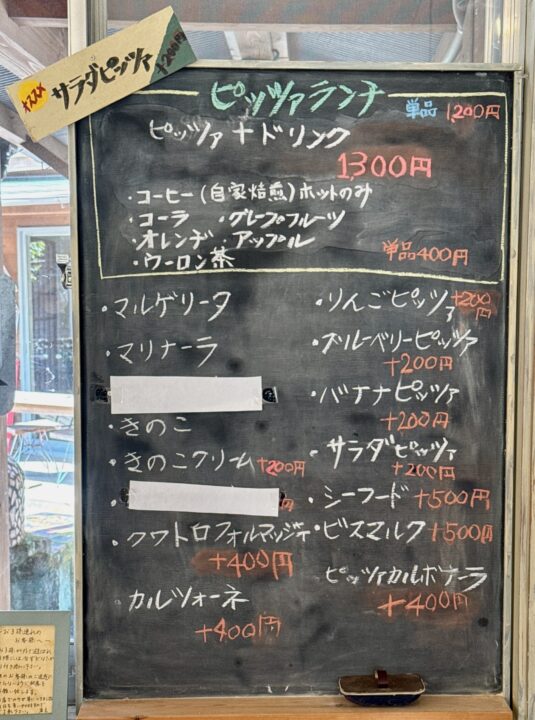 オススメ
サラダピッツァ
+200円
ピッツァランチ
単品 1,200円
ピッツァ+ドリンク
1300円
・コーヒー(自家焙煎)ホットのみ
・コーラ ・グレープフルーツ
・オレンヂ ・アップル
・ウーロン茶
単品400円
・マルゲリータ
・マリナーラ
・きのこ
・きのこクリーム+200円
・
円
・クワトロフォルマッジォ
+400円
・カルツォーネ
+400円
・りんごピッツァ+200円
・ブルーベリーピッツァ
+200円
・バナナピッツァ
+200円
・サラダピッツァ
+200円
・シーフード+500円
・ビスマルク+500円
・ピッツァカルボナーラ
+400円
お子様連れの
お客様へ